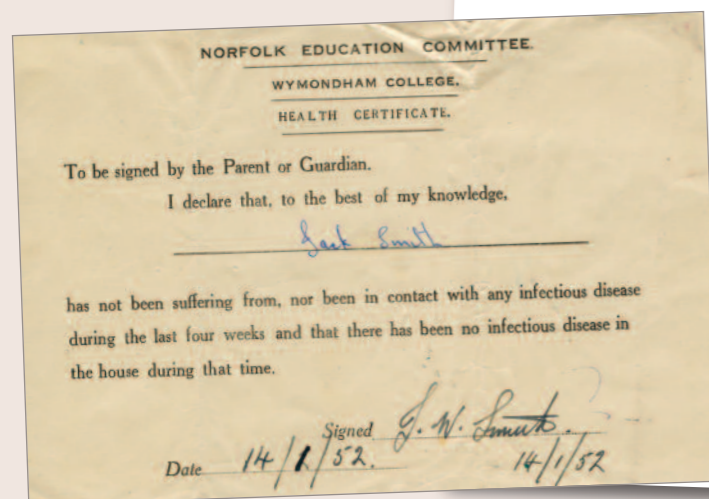 NORFOLK EDUCATION COMMITTEE.
WYMONDHAM COLLEGE.
HEALTH CERTIFICATE.
To be signed by the Parent or Guardian.
I declare that, to the best of my knowledge,
Jack Smith
has not been suffering from, nor been in contact with any infectious disease
during the last four weeks and that there has been no infectious disease in
the house during that time.
Signed J. W. Smith.
Date 14/1/52. 14/1/52